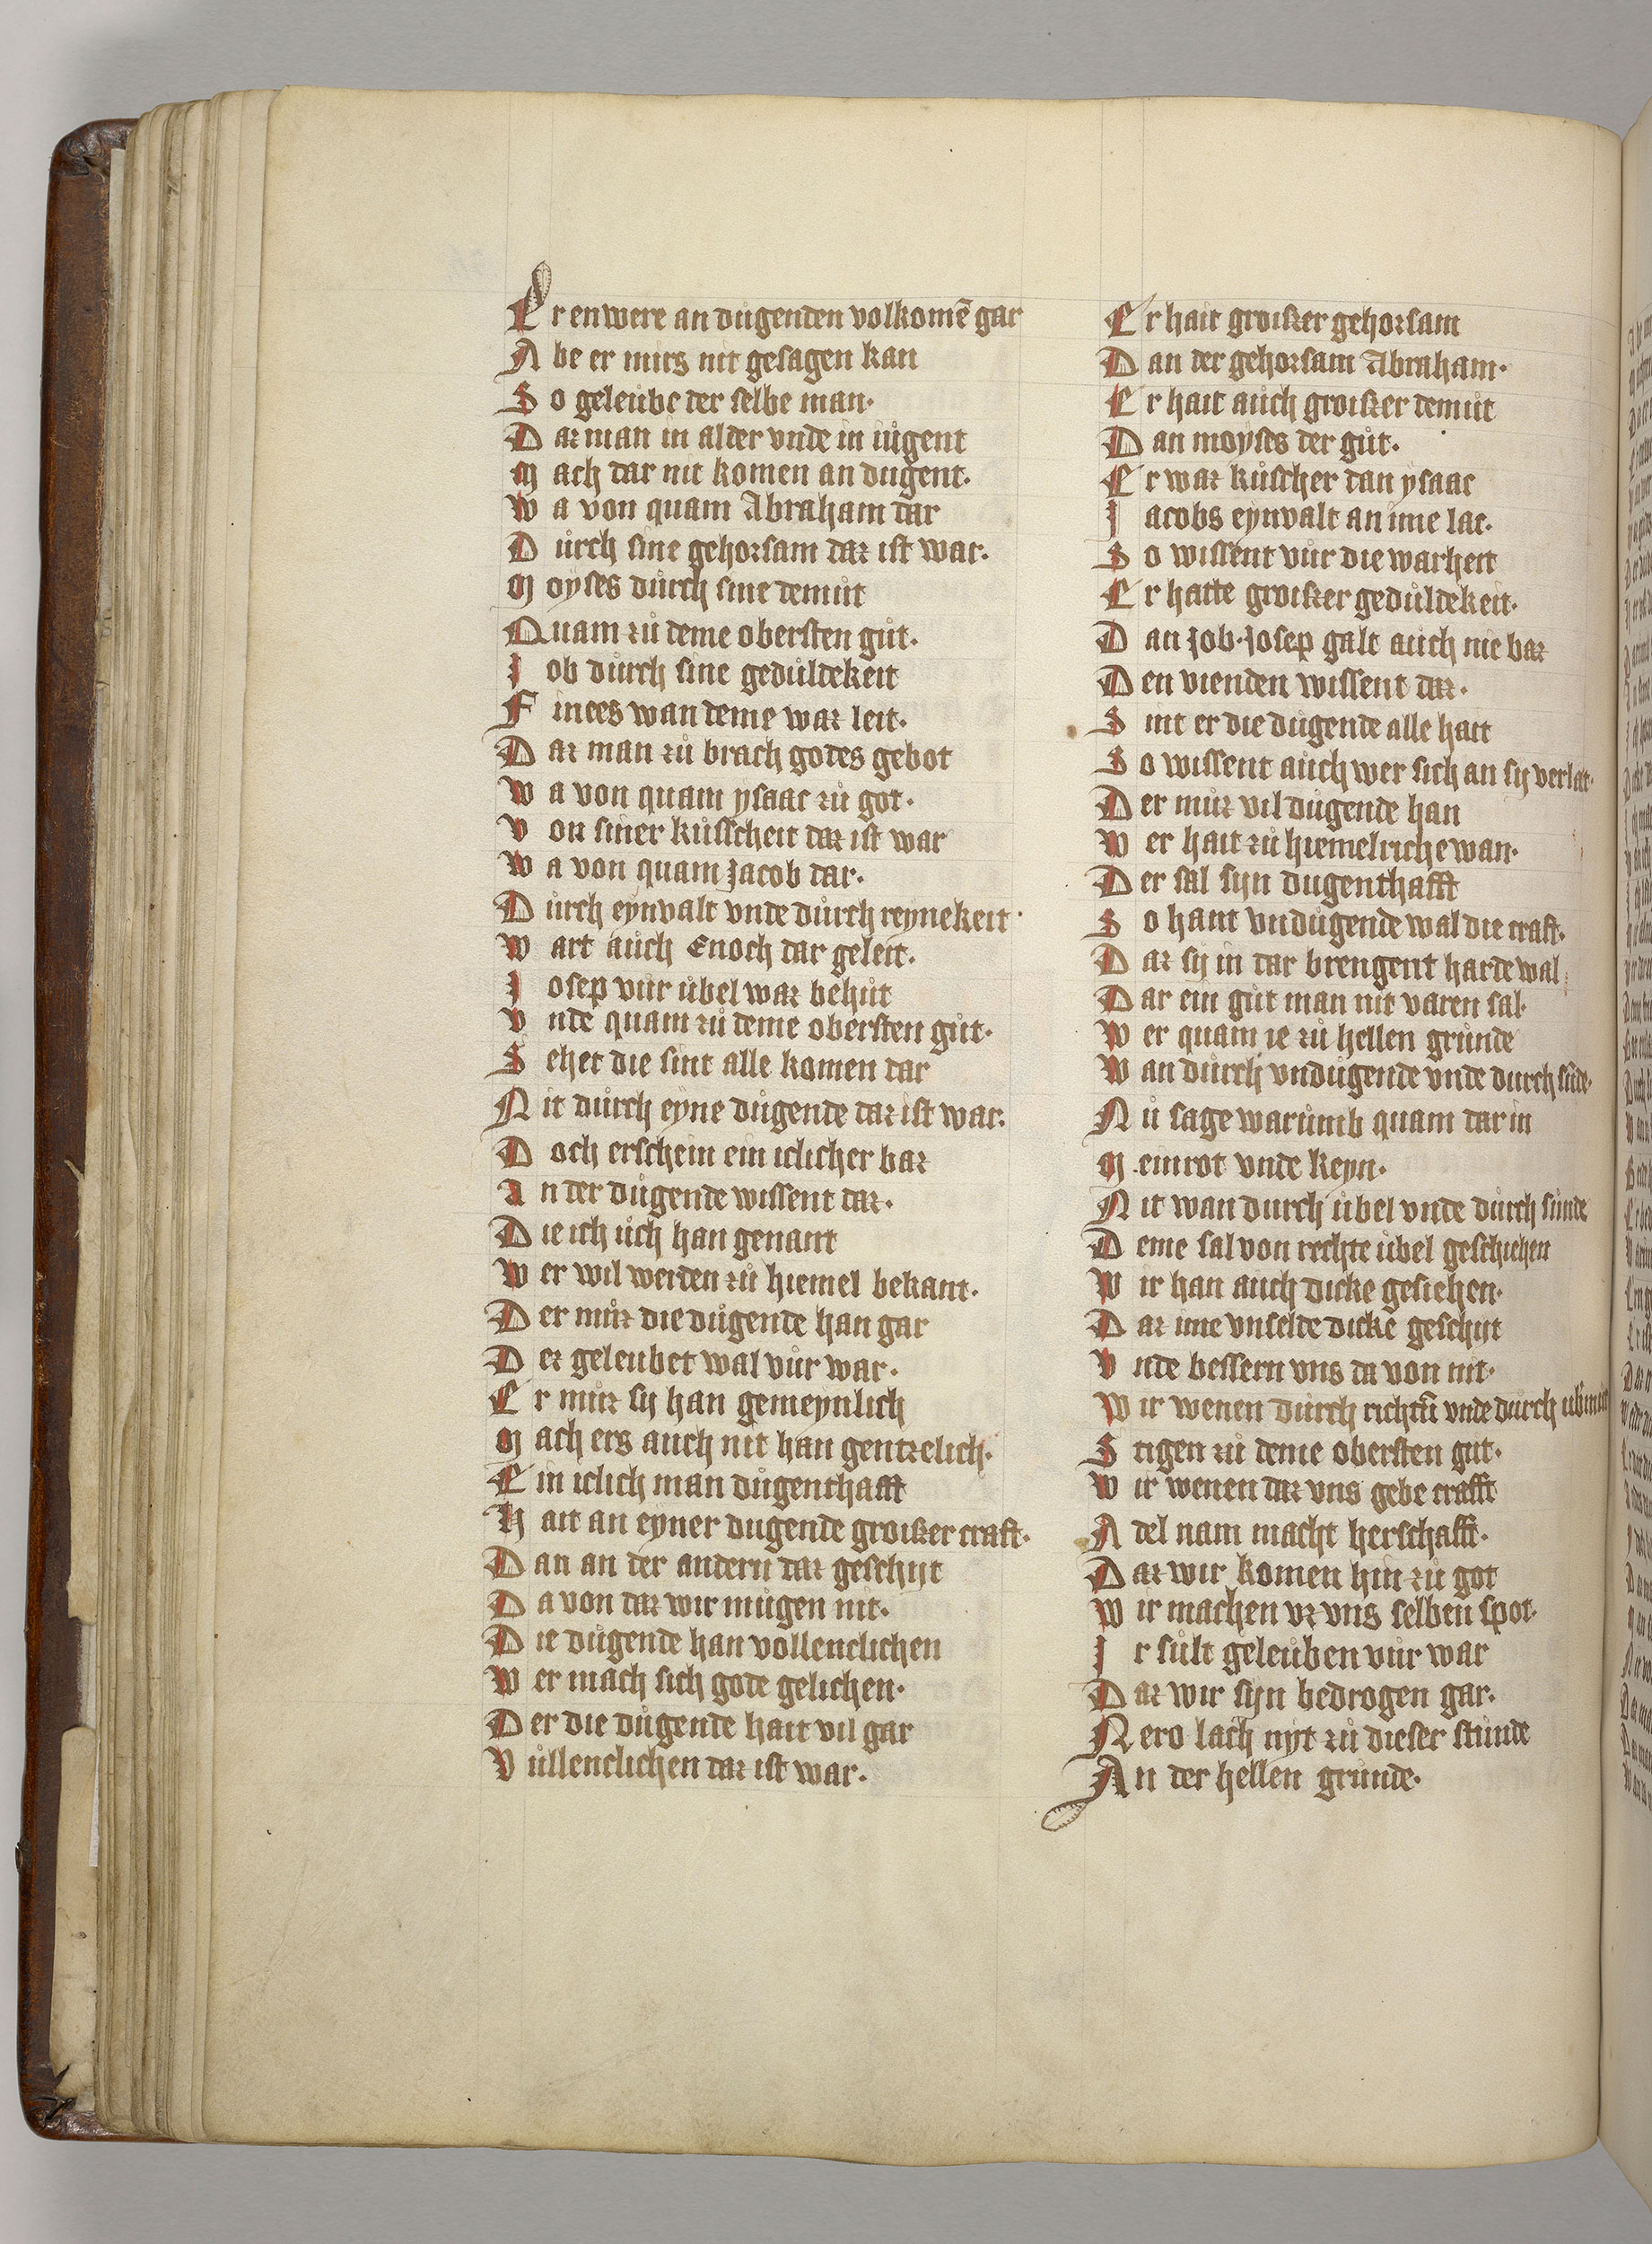 Er enwere an důgenden volkomē gar
Abe er mirs nit gesagen kan
So geleůbe der selbe man·
Daz man in alder vnde in iůgent
Mach dar nit komen an dugent·
Wa von quam Abraham dar
Důrch sine gehorsam daz ist war·
Moyses důrch sine demůt
Quam zů deme obersten gůt·
Job důrch sine gedůldekeit
Finees wan deme waz leit·
Daz man zů brach godes gebot
Wa von quam ysaac zů got·
Von siner kůsscheit daz ist war
Wa von quam Jacob dar·
Důrch eynvalt vnde důrch reynekeit·
Wart aůch Enoch dar geleit·
Josep vůr ůbel waz behůt
Vnde quam zů deme obersten gůt·
Sehet die sint alle komen dar
Nit důrch eyne důgende daz ist war·
Doch erschein ein iclicher baz
An der důgende wissent daz·
Die ich ůch han genant
Wer wil werden zů hiemel bekant·
Der můz die důgende han gar
Dez geleubet wal vůr war·
Er můz sy han gemeynlich
Mach ers auch nit han gentzelich·
Ein iclich man důgenthafft
Hait an eyner dugende groißer craft·
Dan an der andern daz geschyt
Da von daz wir můgen nit·
Die důgende han vollenclichen
Wer mach sich gode gelichen·
Der die důgende hait vil gar
Vůllenclichen daz ist war·
Er hait groißer gehorsam
Dan der gehorsam Abraham·
Er hait aůch groißer demůt
Dan moyses der gůt·
Er waz kůscher dan ysaac
Jacobs eynvalt an ime lac·
So wissent vůr die warheit
Er hatte groißer gedůldekeit·
Dan Job·Josep galt aůch nie baz
Den vienden wissent daz·
Sint er die důgende alle hait
So wissent aůch wer sich an sy verlat·
Der můz vil důgende han
Wer hait zů hiemelriche wan·
Der sal syn dugenthafft
So hant vndůgende wal die craft·
Daz sy in dar brengent harde wal
Dar ein gůt man nit varen sal·
Wer quam ie zů hellen grůnde
Wan důrch vndůgende vnde durch sůde·
Nů sage warůmb quam dar in
Meinrot vnde keyn·
Nit wan durch ůbel vnde důrch sůnde
Deme sal von rechte ůbel geschiehen
Wir han auch dicke gesiehen·
Daz ime vnselde dicke geschyt
Vnde bessern vns da von nit·
Wir wenen důrch richtů vnde důrch
Stigen zů deme obersten gůt·
Wir wenen daz vns gebe crafft
Adel nam macht herschafft·
Daz wir komen hin zů got
Wir machen vz vns selben spot·
Jr sůlt geleůben vůr war
Daz wir syn bedrogen gar·
Nero lach nyt zů dieser stůnde
An der hellen grůnde·